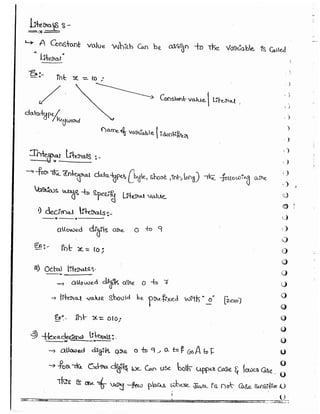 Literals :-
↳ A Constant value which can be assign to the variable is called
"literal"
Ex:- int x = 10 ;
Constant value | Literal.
datatype/
keyword
name of variable | identifier
Integral literals :-
→ for the Integral data types (byte, short, int, long) the following are
various ways to specify literal value
i) decimal literals:-
allowed digits are 0 to 9
Ex:- int x = 10;
ii) Octal literals:-
→ allowed digits are 0 to 7
→ literal value should be prefixed with "0" [zero]
Ex:- int x = 010;
3) Hexadecimal literal :-
→ allowed digits are 0 to 9, a to f (or) A to F
→ for the extra digits we can use both upper case & lower case.
This is one of very few places where Java is not case sensitive